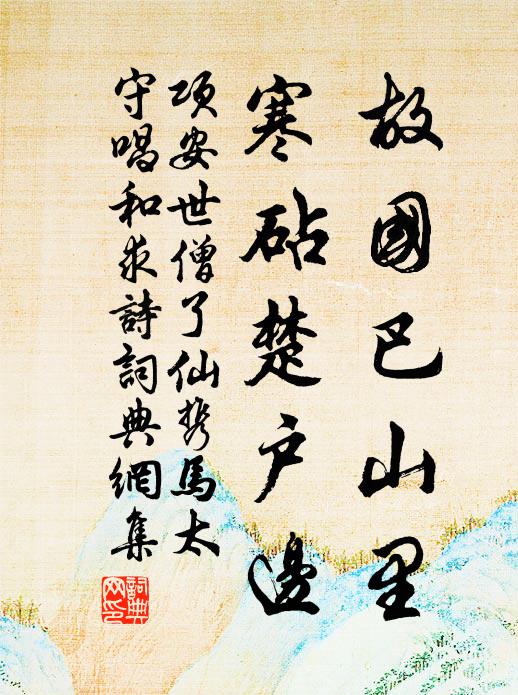 故國巴山里
寒砧楚户邊
項安世僧了仙携馬太
守唱和求詩詞典網集
詞典
网印